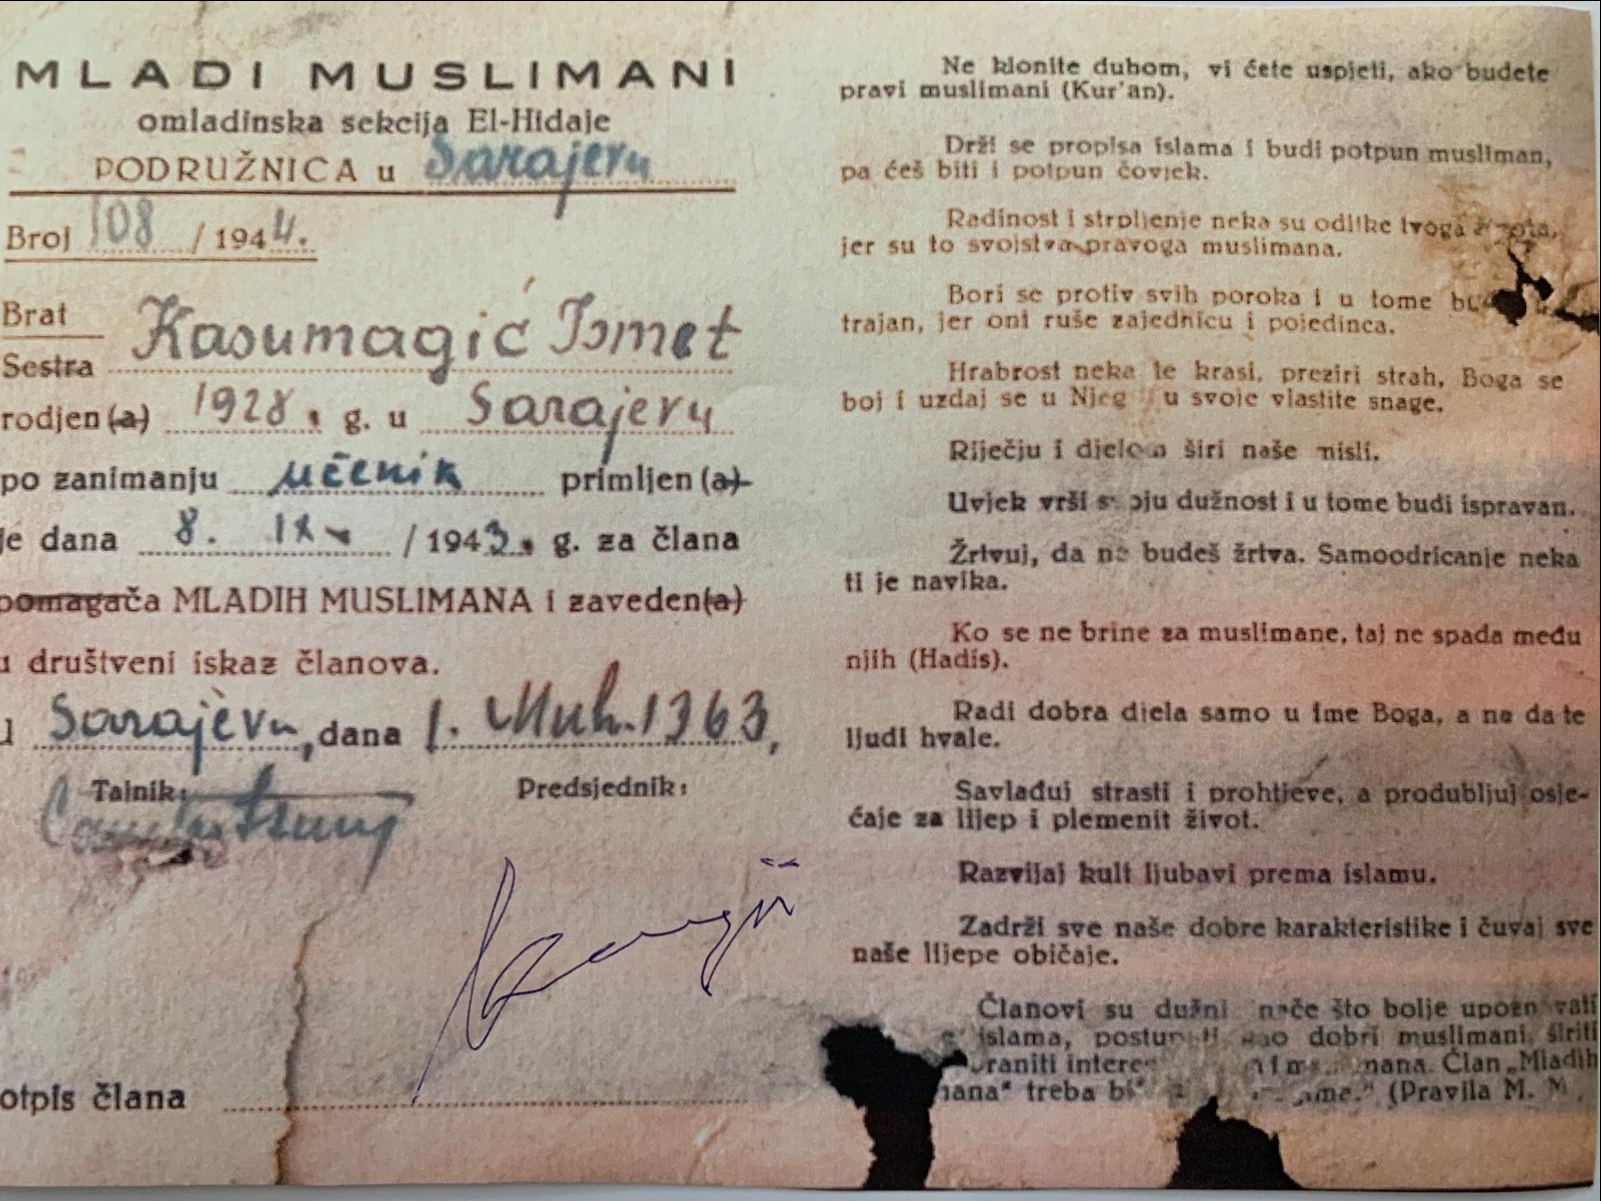 MLADI MUSLIMANI
omladinska sekcija El-Hidaje
PODRUŽNICA u Sarajevu
Broj 108 / 1944.
Brat
Kasumagić Ismet
Sestra
rodjen(a) 1928. g. u Sarajevu
po zanimanju učenik primljen(a)
je dana 8. IX / 1943. g. za člana
pomagača MLADIH MUSLIMANA i zaveden(a)
u društveni iskaz članova.
U Sarajevu, dana 1. Muh. 1363,
Tajnik: Predsjednik:
otpis člana
Ne klonite duhom, vi ćete uspjeti, ako budete
pravi muslimani (Kur'an).
Drži se propisa islama i budi potpun musliman,
pa ćeš biti i potpun čovjek.
Radinost i strpljenje neka su odlike tvoga
jer su to svojstva pravoga muslimana.
Bori se protiv svih poroka i u tome
trajan, jer oni ruše zajednicu i pojedinca.
Hrabrost neka te krasi, preziri strah, Boga se
boj i uzdaj se u u svoje vlastite snage.
Riječju i djelom širi naše misli.
Uvjek vrši svoju dužnost i u tome budi ispravan.
Žrtvuj, da ne budeš žrtva. Samoodricanje neka
ti je navika.
Ko se ne brine za muslimane, taj ne spada među
njih (Hadis).
Radi dobra djela samo u ime Boga, a ne da te
ljudi hvale.
Savlađuj strasti i prohtjeve, a produbljuj osje-
ćaje za lijep i plemenit život.
Razvijaj kult ljubavi prema islamu.
Zadrži sve naše dobre karakteristike i čuvaj sve
naše lijepe običaje.
Članovi su dužni što bolje upoznavati
islama, dobri muslimani, širiti
Član „Mladih
treba (Pravila M. M.